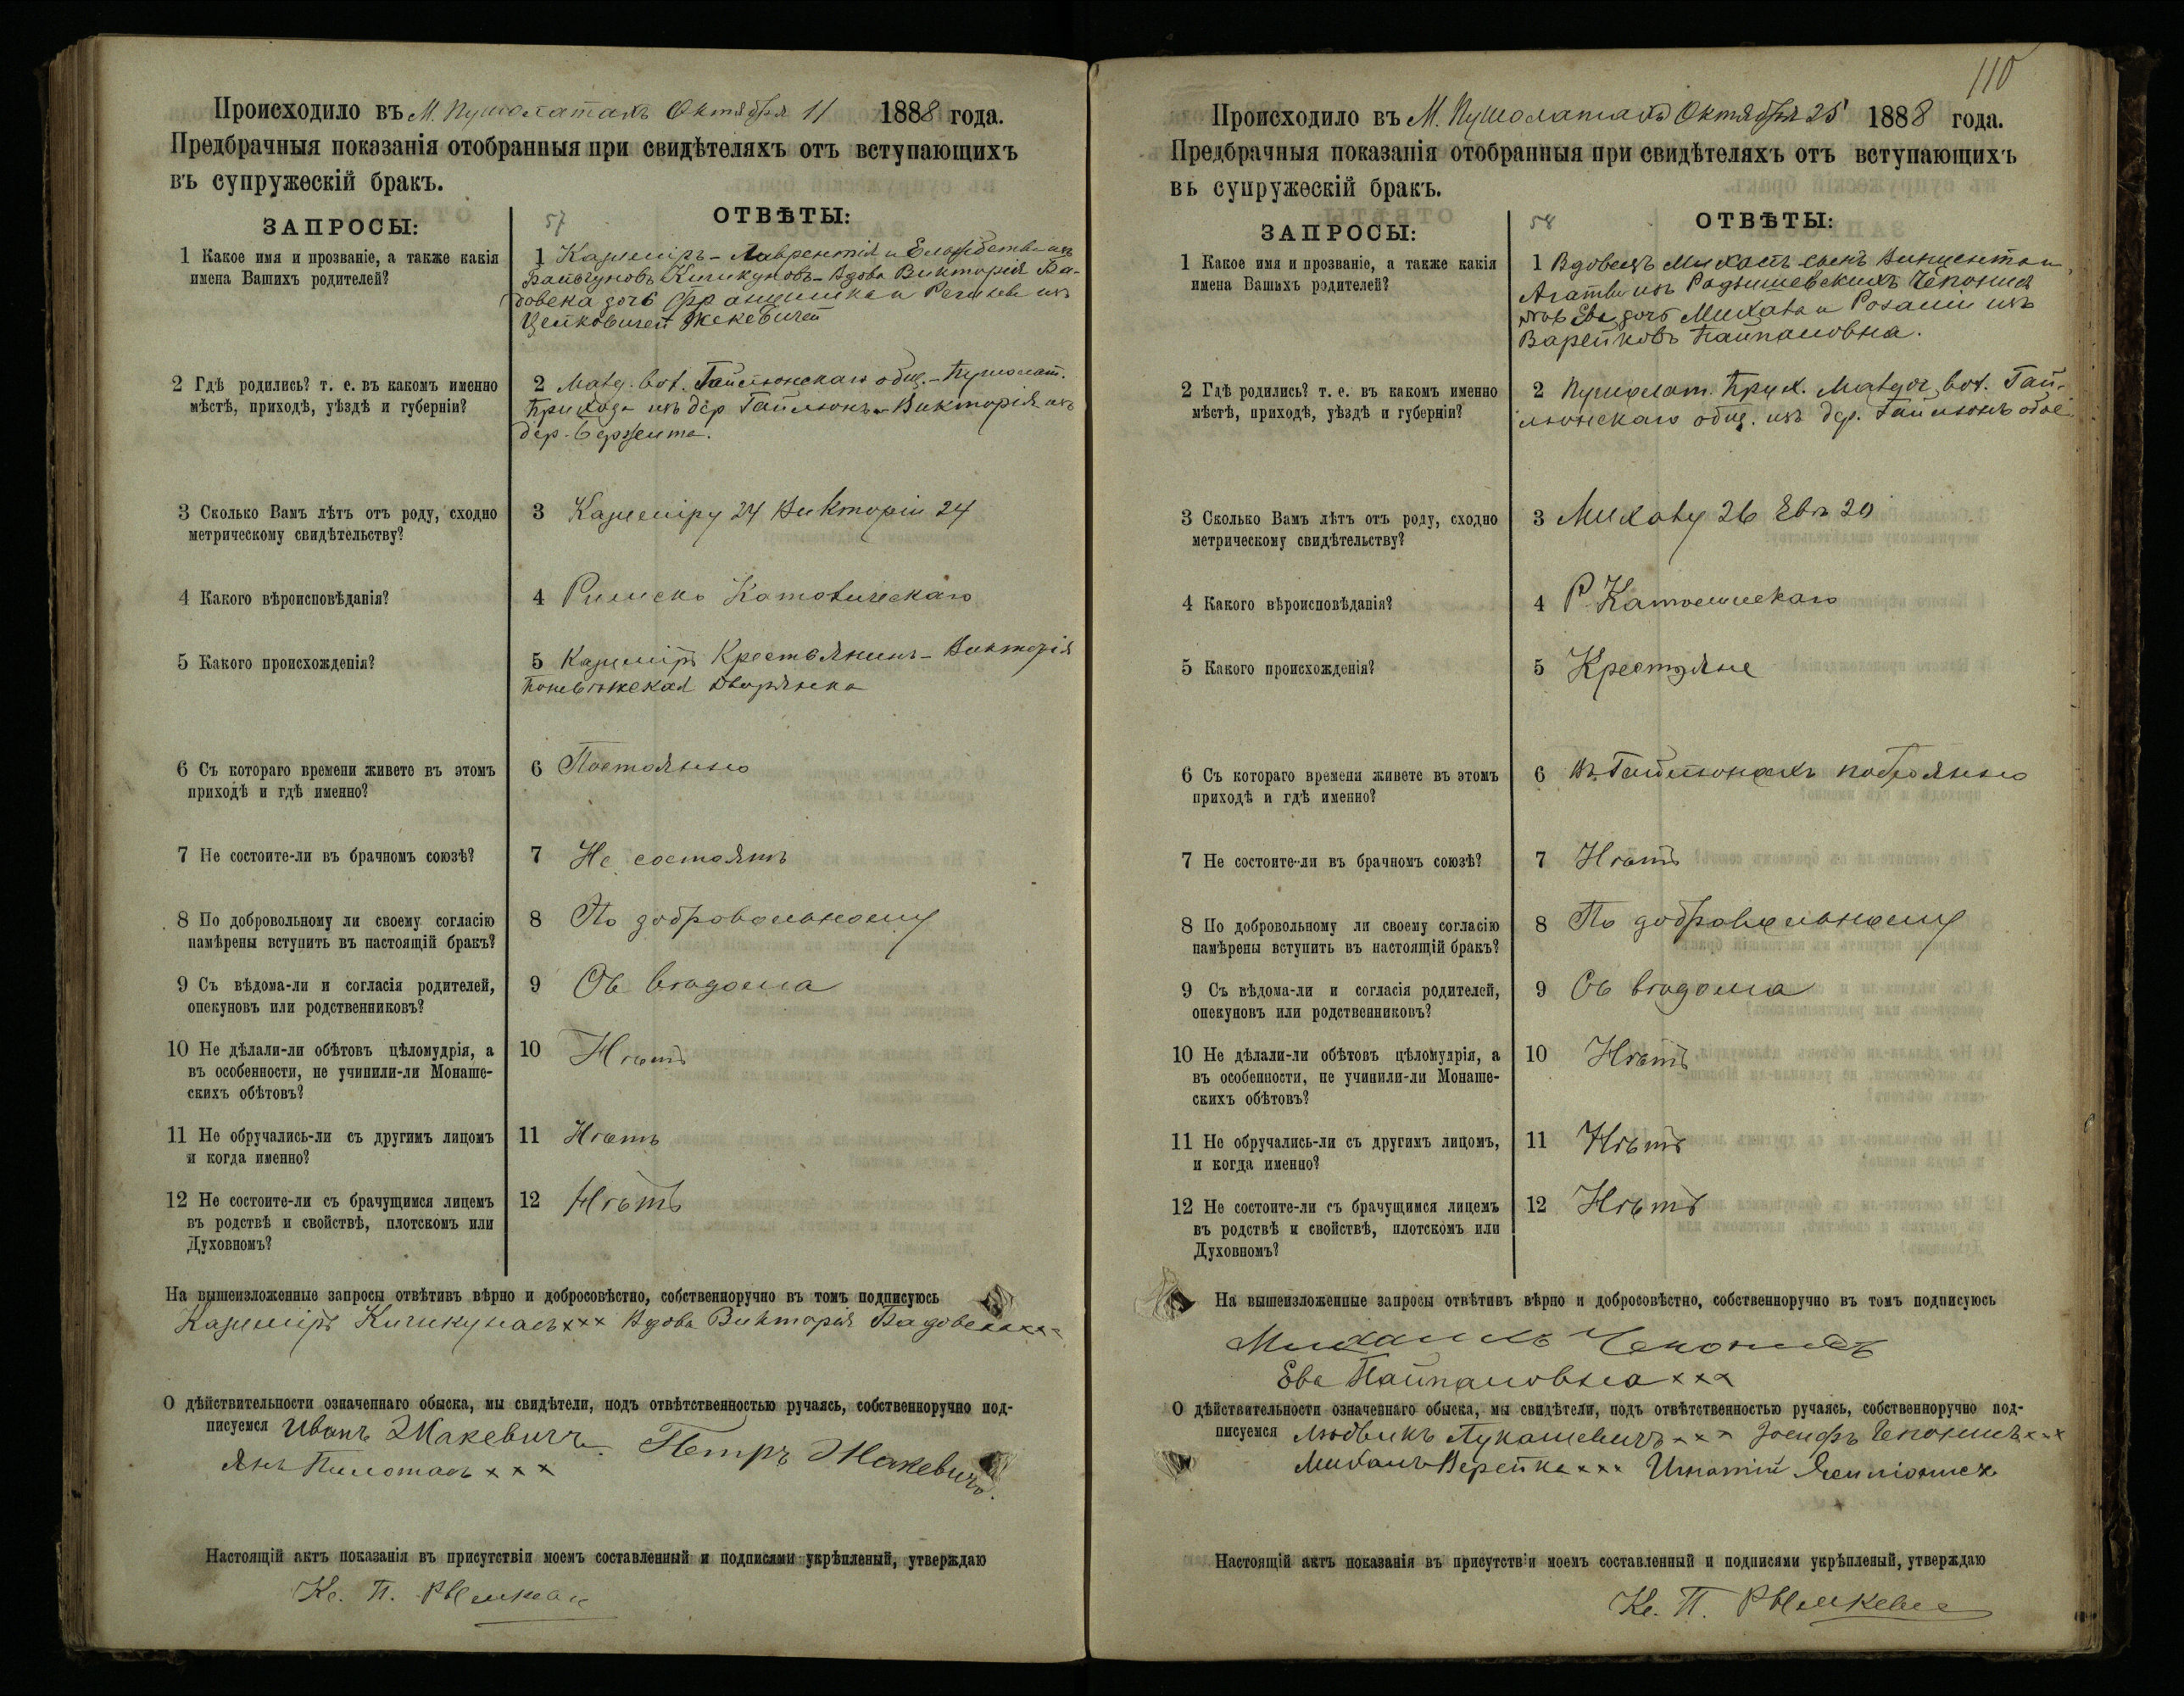 Происходило въ М. Пушолатахъ Октября 11 1888 года.
Предбрачныя показанія отобранныя при свидѣтеляхъ отъ вступающихъ
въ супружескій бракъ.
ЗАПРОСЫ:
57 ОТВѢТЫ:
1 Какое имя и прозваніе, а также какія
имена Вашихъ родителей?
1 Казиміръ - Лаврентія и Ельжбеты изъ
Кичикуновъ - Вдова Викторія Ба-
довска дочь Францишка и изъ
2 Гдѣ родились? т. е. въ какомъ именно
мѣстѣ, приходѣ, уѣздѣ и губерніи?
2 вол. Гайлюнскаго общ. - Пушолат.
Прихода изъ дер Гайлюнъ - Викторія изъ
дер.
3 Сколько Вамъ лѣтъ отъ роду, сходно
метрическому свидѣтельству?
3 Казиміру 24 Викторіи 24
4 Какого вѣроисповѣданія?
4 Римско Католическаго
5 Какого происхожденія?
5 Казиміръ Крестьянинъ - Викторія
Поневѣжская Дворянка
6 Съ котораго времени живете въ этомъ
приходѣ и гдѣ именно?
6 Постоянно
7 Не состоите-ли въ брачномъ союзѣ?
7 Не состоятъ
8 По добровольному ли своему согласію
намѣрены вступить въ настоящій бракъ?
8 По добровольному
9 Съ вѣдома-ли и согласія родителей,
опекуновъ или родственниковъ?
9 Съ вѣдома
10 Не дѣлали-ли обѣтовъ цѣломудрія, а
въ особенности, не учинили-ли Монаше-
скихъ обѣтовъ?
10 Нѣтъ
11 Не обручались-ли съ другимъ лицомъ
и когда именно?
11 Нѣтъ
12 Не состоите-ли съ брачущимся лицемъ
въ родствѣ и свойствѣ, плотскомъ или
Духовномъ?
12 Нѣтъ
На вышеизложенные запросы отвѣтивъ вѣрно и добросовѣстно, собственноручно въ томъ подписуюсь
Казиміръ Кичикунасъ ххх Вдова Викторія Бадовска ххх
О дѣйствительности означеннаго обыска, мы свидѣтели, подъ отвѣтственностью ручаясь, собственноручно под-
писуемся Иванъ Жакевичъ Петръ Жакевичъ.
Янъ ххх
Настоящій актъ показанія въ присутствіи моемъ составленный и подписями укрѣпленый, утверждаю
Кс. П.
110
Происходило въ М. Пушолатахъ Октября 25 1888 года.
Предбрачныя показанія отобранныя при свидѣтеляхъ отъ вступающихъ
въ супружескій бракъ.
ЗАПРОСЫ:
58 ОТВѢТЫ:
1 Какое имя и прозваніе, а также какія
имена Вашыхъ родителей?
1 Вдовецъ Михаилъ сынъ Винцентя и
Агаты изъ Чепонис
Ева дочь Михала и Розаліи изъ
Варейковъ Пайпаловна.
2 Гдѣ родились? т. е. въ какомъ именно
мѣстѣ, приходѣ, уѣздѣ и губерніи?
2 Пушолат. Прих. вол. Гай-
люнскаго общ. изъ дер. Гайлюнъ обое
3 Сколько Вамъ лѣтъ отъ роду, сходно
метрическому свидѣтельству?
3 Михалу 26 Евѣ 20
4 Какого вѣроисповѣданія?
4 Р. Католическаго
5 Какого происхожденія?
5 Крестьяне
6 Съ котораго времени живете въ этомъ
приходѣ и гдѣ именно?
6 Въ Гайлюнахъ
7 Не состоите-ли въ брачномъ союзѣ?
7 Нѣтъ
8 По добровольному ли своему согласію
намѣрены вступить въ настоящій бракъ?
8 По добровольному
9 Съ вѣдома-ли и согласія родителей,
опекуновъ или родственниковъ?
9 Съ вѣдома
10 Не дѣлали-ли обѣтовъ цѣломудрія, а
въ особенности, не учинили-ли Монаше-
скихъ обѣтовъ?
10 Нѣтъ
11 Не обручались-ли съ другимъ лицомъ,
и когда именно?
11 Нѣтъ
12 Не состоите-ли съ брачущимся лицемъ
въ родствѣ и свойствѣ, плотскомъ или
Духовномъ?
12 Нѣтъ
На вышеизложенные запросы отвѣтивъ вѣрно и добросовѣстно, собственноручно въ томъ подписуюсь
Михаилъ Чепонисъ
Ева Пайпаловна ххх
О дѣйствительности означеннаго обыска, мы свидѣтели, подъ отвѣтственностью ручаясь, собственноручно под-
писуемся Людвикъ Лукашевичъ ххх Іосифъ Чепонисъ ххх
Михалъ Варейка ххх Игнатій
Настоящій актъ показанія въ присутствіи моемъ составленный и подписями укрѣпленый, утверждаю
Кс. П.